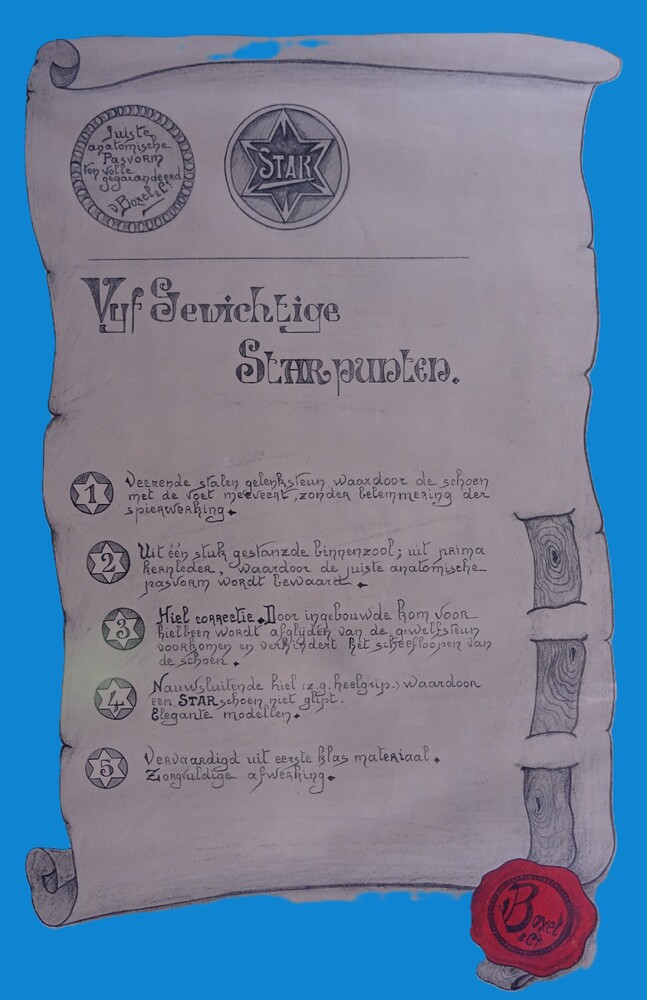 Juiste
anatomische
Pasvorm
ten volle
gegarandeerd
v Boxel & Co.
STAR
Vyf Gewichtige
STARpunten.
1 Veerende stalen gelenksteun, waardoor de schoen
met de voet meeveert, zonder belemmering der
spierwerking.
2 Uit één stuk gestanzde binnenzool; uit prima
kernleder, waardoor de juiste anatomische
pasvorm wordt bewaard.
3 Hiel correctie. Door ingebouwde kom voor
hielbeen wordt afglijden van de gewelfsteun
voorkomen en verhindert het scheefloopen van
de schoen.
4 Nauwsluitende hiel (z.g. heelgrip.) waardoor
een STAR schoen niet glipt.
Elegante modellen.
5 Vervaardigd uit eerste klas materiaal.
Zorgvuldige afwerking.
v Boxel
& Co.